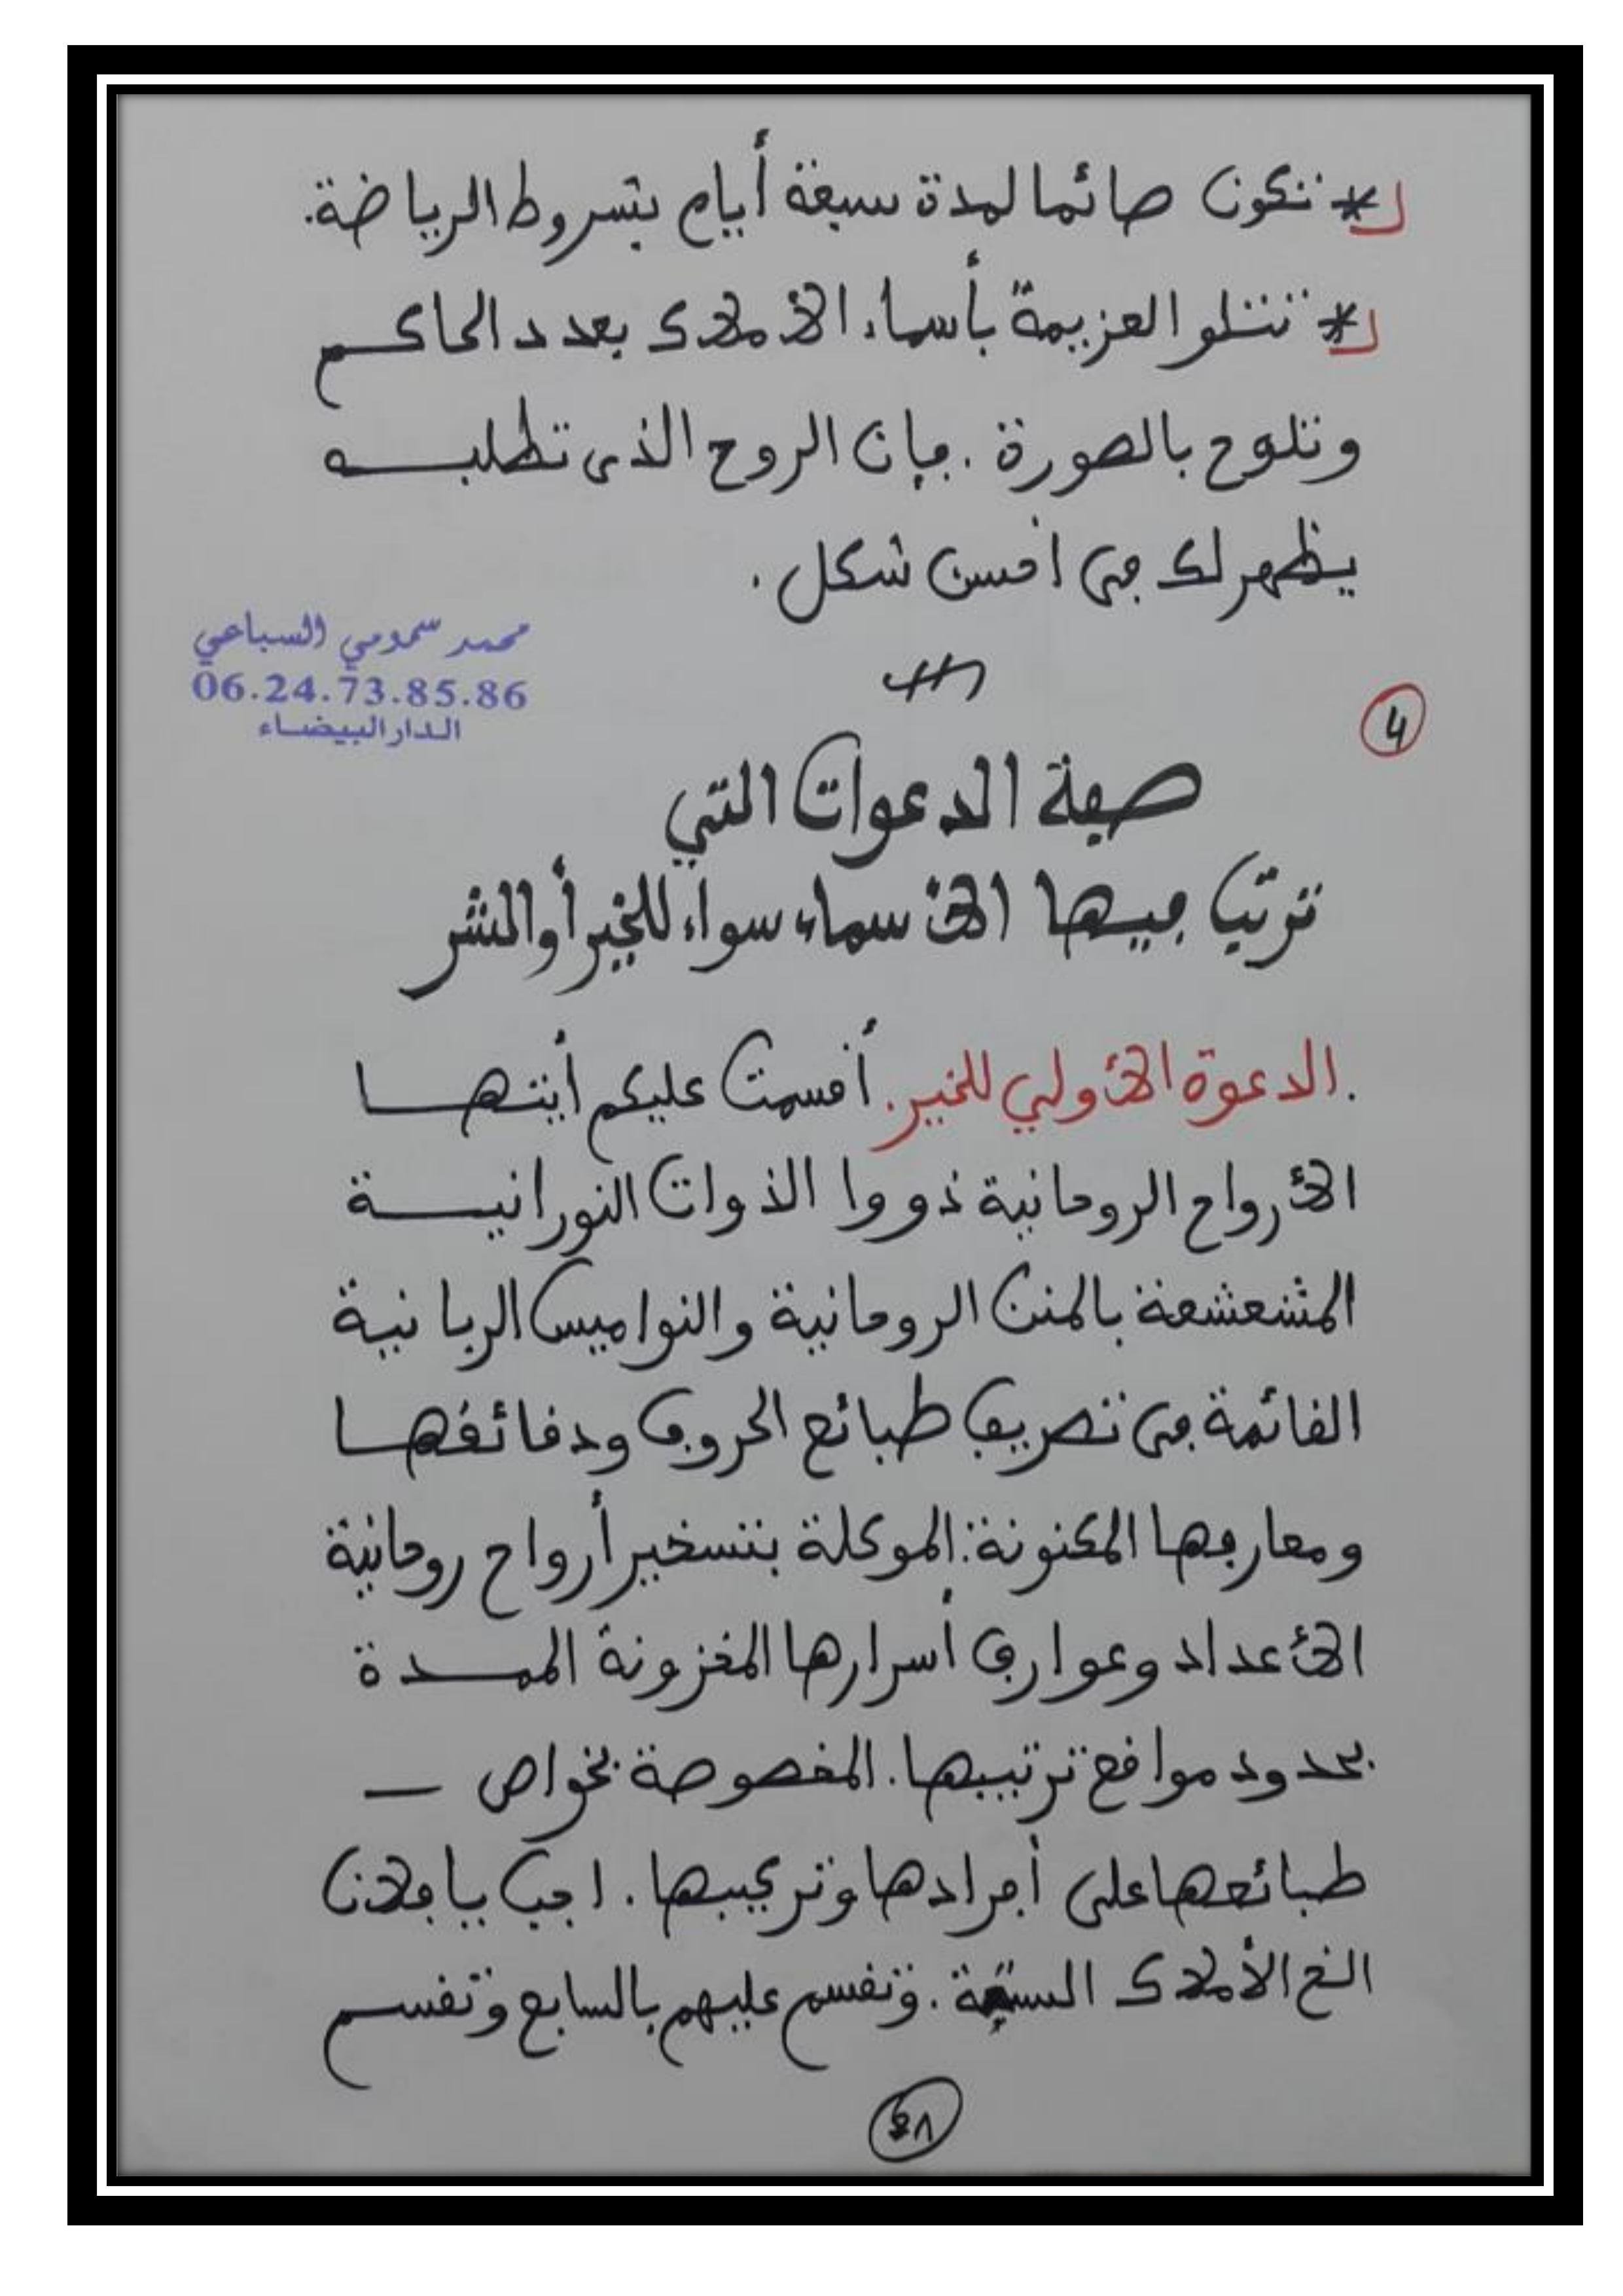 * تكون صائما لمدة سبعة أيام بشروط الرياضة.
* تتلو العزيمة بأسماء الأملاك بعدد الحاكم
وتلوح بالصورة. ڢإن الروح الذى تطلبه
يظهر لك ڢى أڧسن شكل.
محمد سمومي السباعي
06.24.73.85.86
الدار البيضاء
4
صڢة الدعوات التي
ترتب ڢيها الأسماء سواء للخير أو الشر
.الدعوة الأولي للخير. أڧسمت عليكم أيتها
الأرواح الروحانية ذووا الذوات النورانية
المشعشعة بالمنن الروحانية والنواميس الربانية
الڧائمة ڢى تصريڢ طبائع الحروڢ ودڧائڧها
ومعارڢها المكنونة. الموكلة بتسخير أرواح روحانية
الأعداد وعوارڢ أسرارها المخزونة الممدة
بحدود مواڧع ترتيبها. المخصوصة بخواص —
طبائعها على أڢرادها وتركيبها. اجب يا ڢلان
الخ الأملاك الستة. وتڧسم عليهم بالسابع وتڧسم